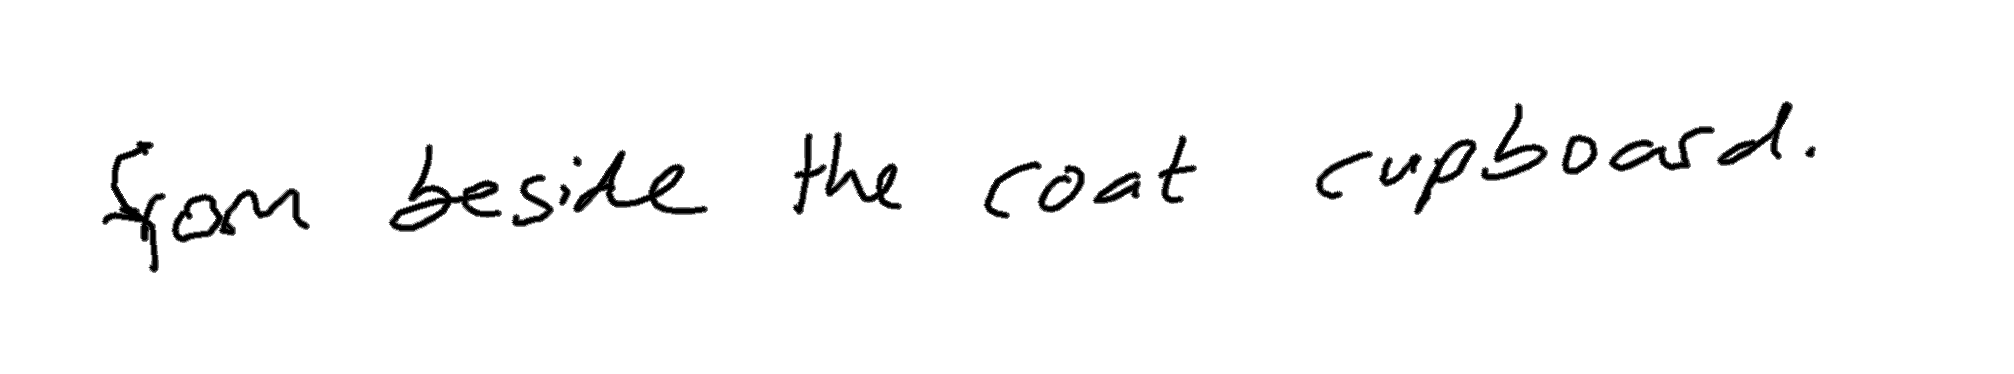 from beside the coat cupboard.